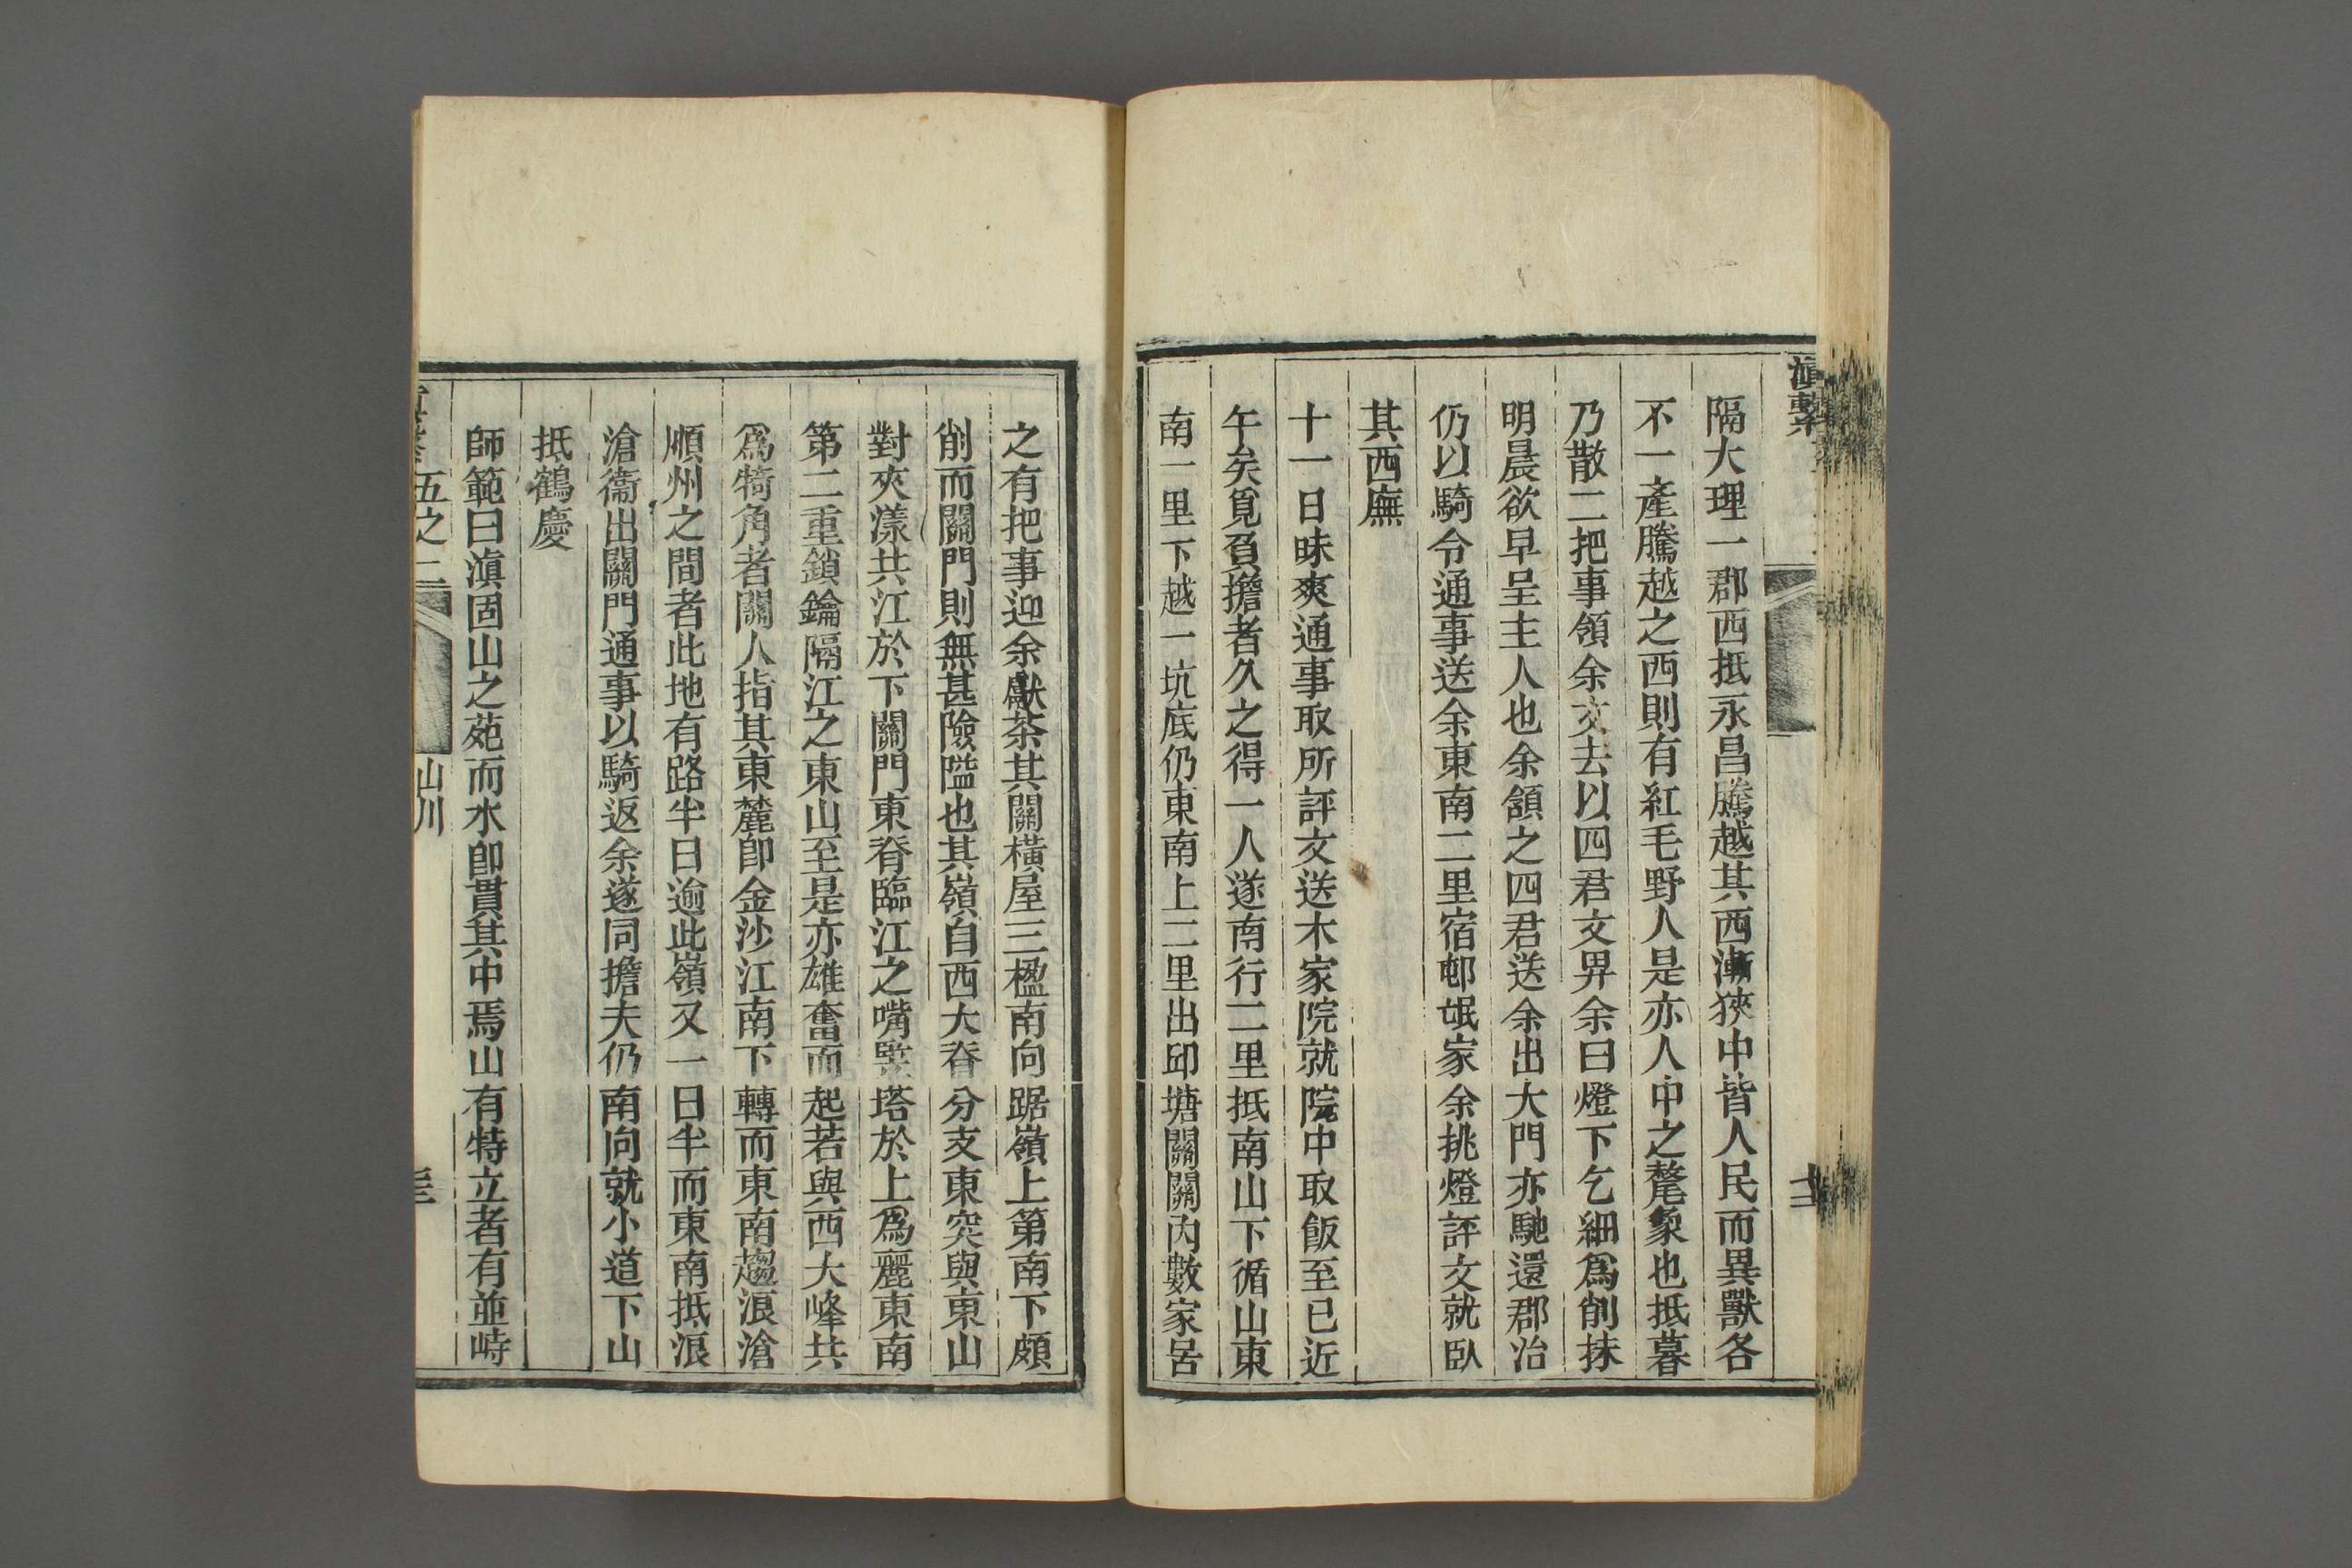 滇繫
隔大理一郡西抵永昌騰越其西漸狹中皆人民而異獸各
不一產騰越之西則有紅毛野人是亦人中之氂象也抵暮
乃散二把事領余文去以四君文畀余曰燈下乞細爲削抹
明晨欲早呈主人也余頷之四君送余出大門亦馳還郡治
仍以騎令通事送余東南二里宿邨氓家余挑燈評文就臥
其西廡
十一日昧爽通事取所評文送木家院就院中取飯至已近
午矣覓負擔者久之得一人遂南行二里抵南山下循山東
南一里下越一坑底仍東南上二里出邱塘關關內數家居
之有把事迎余獻茶其關橫屋三楹南向踞嶺上第南下頗
削而關門則無甚險隘也其嶺自西大脊分支東突與東山
對夾漾共江於下關門東脊臨江之嘴竪塔於上爲麗東南
第二重鎖鑰隔江之東山至是亦雄奮而起若與西大峰共
爲犄角者關人指其東麓卽金沙江南下轉而東南趨浪滄
順州之間者此地有路半日逾此嶺又一日半而東南抵浪
滄衞出關門通事以騎返余遂同擔夫仍南向就小道下山
抵鶴慶
師範曰滇固山之苑而水卽貫其中焉山有特立者有並峙
五之二 山川